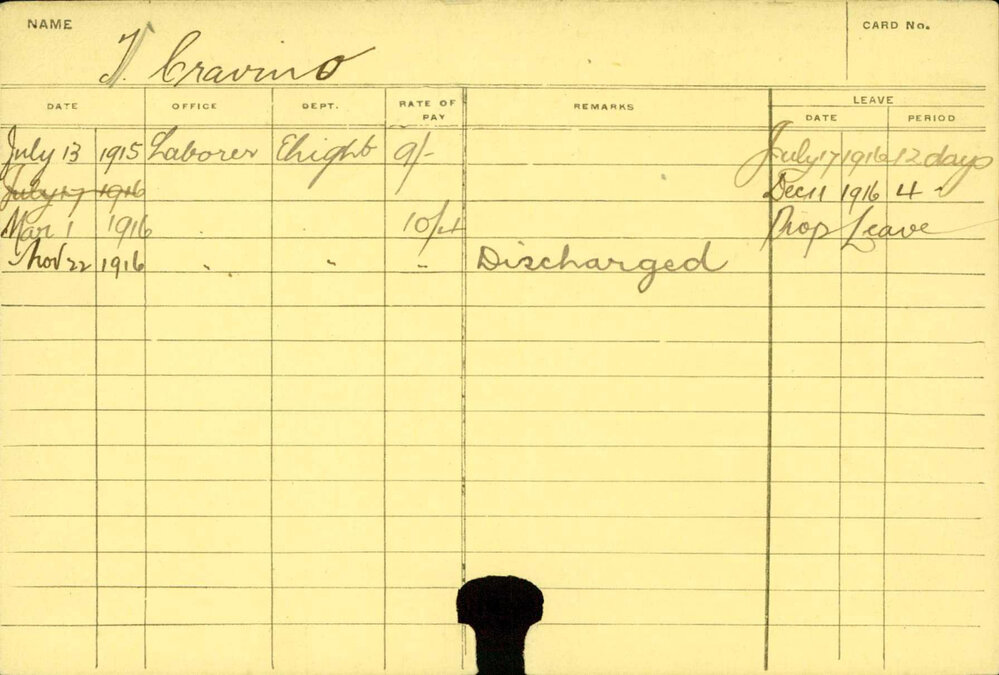 NAME CARD No.
T. Cravino
DATE OFFICE DEPT. RATE OF PAY REMARKS LEAVE
DATE PERIOD
July 13 1915 Laborer Elight 9/- July 17 1916 12 days
July 17 1916 Dec 11 1916 4 "
Mar 1 1916 " 10/4 Prop Leave
Nov 22 1916 " " " Discharged